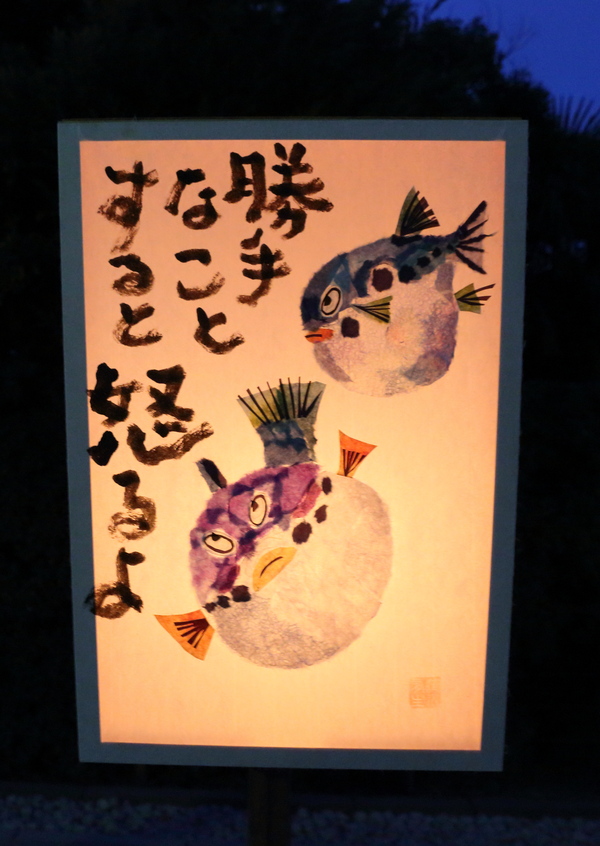 勝手
なこと
すると
怒るよ